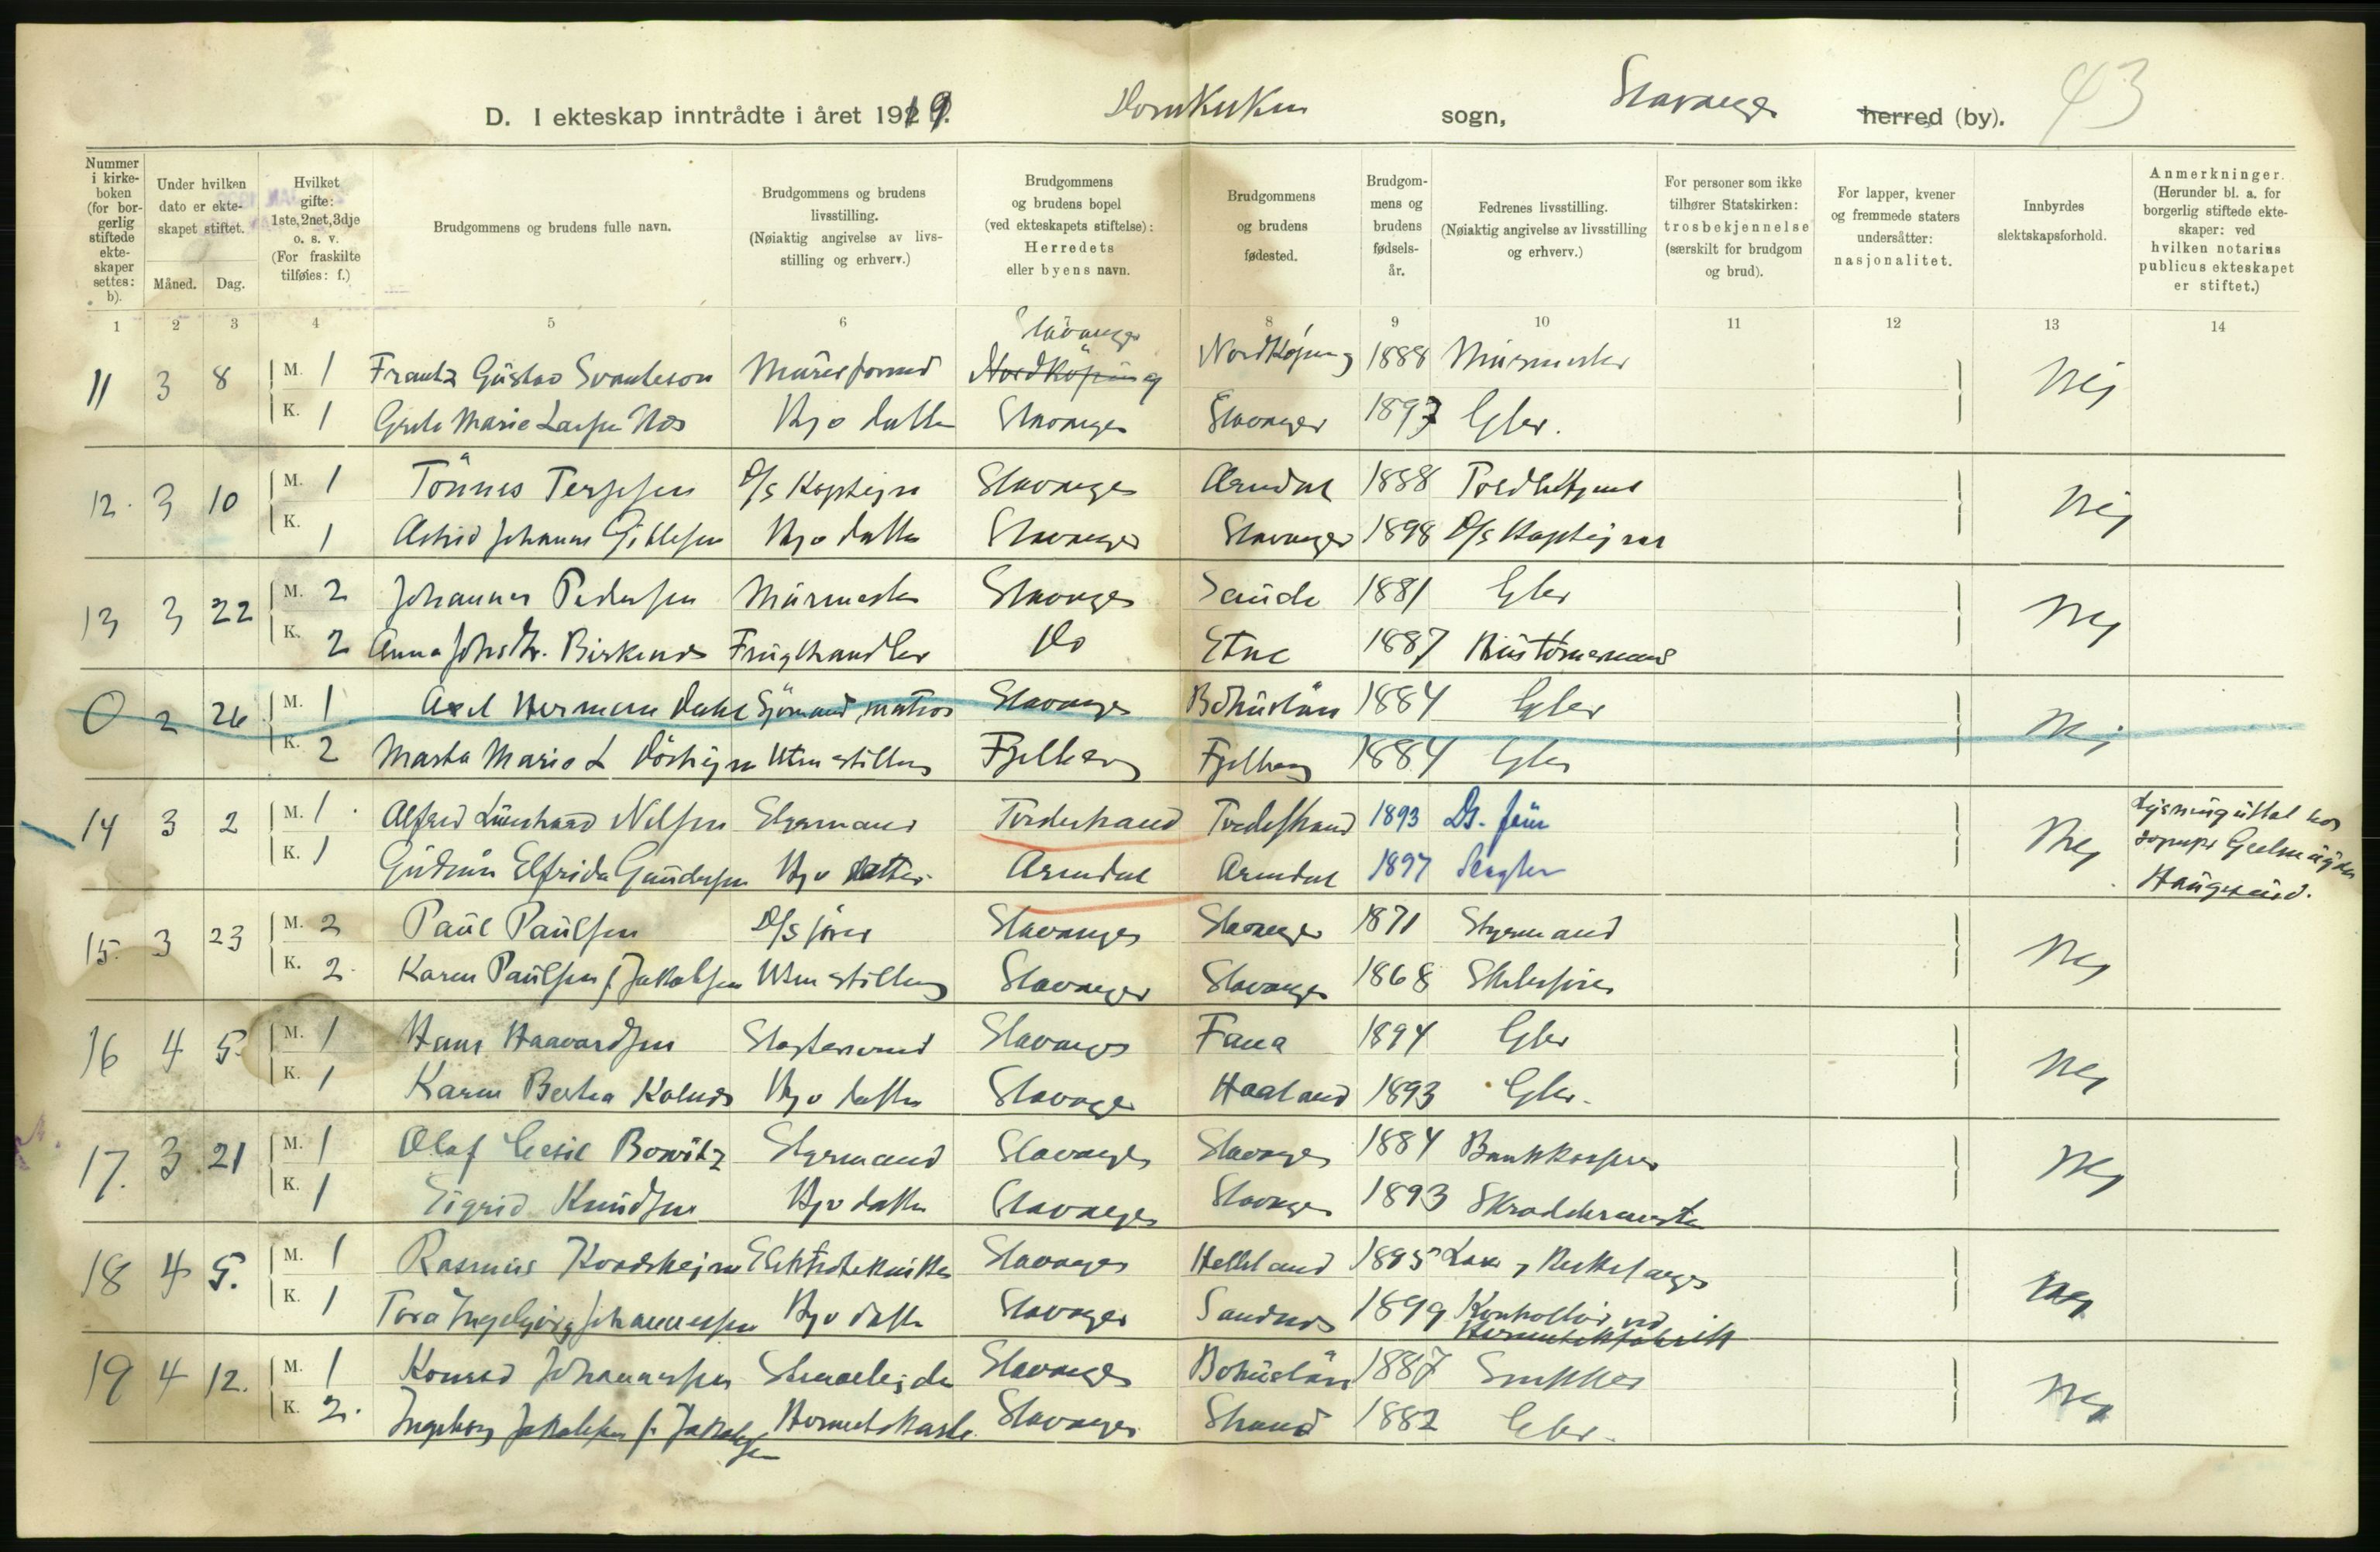 D. I ekteskap inntrådte i året 1919. Domkirken sogn, Stavanger herred (by). 43
Nummer i kirkeboken (for borgerlig stiftede ekteskaper settes: b).
Under hvilken dato er ekteskapet stiftet.
Måned. Dag.
Hvilket gifte: 1ste, 2net, 3dje o. s. v. (For fraskilte tilføies: f.)
Brudgommens og brudens fulle navn.
Brudgommens og brudens livsstilling. (Nøiaktig angivelse av livsstilling og erhverv.)
Brudgommens og brudens bopel (ved ekteskapets stiftelse): Herredets eller byens navn.
Brudgommens og brudens fødested.
Brudgommens og brudens fødselsår.
Fedrenes livsstilling. (Nøiaktig angivelse av livsstilling og erhverv.)
For personer som ikke tilhører Statskirken: trosbekjennelse (særskilt for brudgom og brud).
For lapper, kvener og fremmede staters undersåtter: nasjonalitet.
Innbyrdes slektskapsforhold.
Anmerkninger. (Herunder bl. a. for borgerlig stiftede ekteskaper: ved hvilken notarius publicus ekteskapet er stiftet.)
1 2 3 4 5 6 8 9 10 11 12 13 14
Stavanger
11 3 8 M. 1 Frantz Gustav Svanteson Nordköping Nordköping 1888 Murmester Nej
K. 1 Marie Stavanger Stavanger 1897 Gbr.
12. 3 10 M. 1 Tönnes Terjesen D/s Kaptejn Stavanger Arendal 1888 Nej
K. 1 Astrid Johanne Hjv datter Stavanger Stavanger 1898 D/s Kaptejn
13 3 22 M. 2 Johannes Pedersen Murmester Stavanger Saude 1881 Gbr Nej
K. 2 Anna Johsdtr. Birkenes Do Etne 1887
0 2 26 M. 1 Axel Herman Dahl Sjömand, matros Stavanger Bohuslän 1884 Gbr Nej
K. 2 Marta Marie L Uten stilling Fjelberg Fjelberg 1884 Gbr
14 3 2 M. 1 Alfred Nilsen Styrmand Tvedestrand Tvedestrand 1893 Nej
K. 1 Gudrun Elfrida Gundersen Hjv datter Arendal Arendal 1897
Haugesund.
15. 3 23 M. 2 Paul Paulsen D/s fører Stavanger Stavanger 1871 Styrmand Nej
K. 2. Karen Paulsen f. Jakobsen Uten stilling Stavanger Stavanger 1868
16 4 5. M. 1 Hans Haavardsen Stavanger Fana 1894 Gbr Nej
K. 1 Karen Berta Kolnes Hjv datter Stavanger Haaland 1893 Gbr.
17. 3 21 M. 1 Olaf Cecil Bowitz Styrmand Stavanger Stavanger 1884 Bankkasserer Nej
K. 1 Sigrid Knudsen Hjv datter Stavanger Stavanger 1893 Skreddermester
18 4 5. M. 1 Rasmus Elektrotekniker Stavanger Helleland 1895 Nej
K. 1 Tora Ingebjørg Johannessen Hjv datter Stavanger Sandnes 1899 Kontrollør ved
Hermetikfabrikk
19 4 12. M. 1 Konrad Johannessen Stenarbejder Stavanger Bohuslän 1887 Snekker Nej
K. 2. Ingeborg Jakobsen f. Jakobsen Stavanger Strand 1882 Gbr.